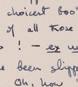 choicest boo
of all those
! — ex u
been slipp
Oh, how